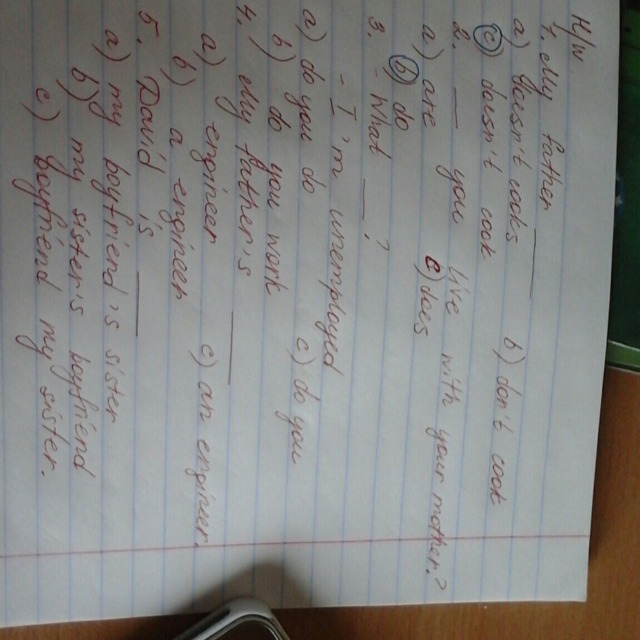 H/w
1. My father ____
a) doesn't cooks b) don't cook
c) doesn't cook
2. ____ you live with your mother?
a) are c) does
b) do
3. - What ____?
- I'm unemployed
a) do you do c) do you
b) do you work
4. My father's ____
a) engineer c) an engineer
b) a engineer
5. David is ____
a) my boyfriend is sister
b) my sister's boyfriend
c) boyfriend my sister.